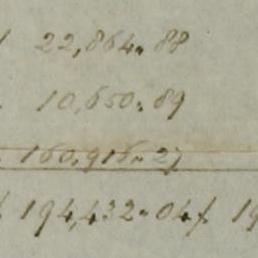 22,864.. 88
10,650.. 89
160,916.. 27
194,432.. 04 19